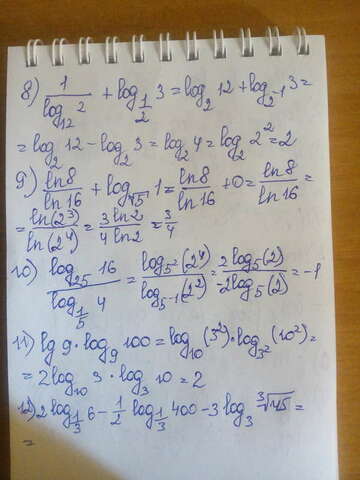 8) 1/log₁₂ 2 + log_{1/2} 3 = log₂ 12 + log_{2⁻¹} 3 =
= log₂ 12 - log₂ 3 = log₂ 4 = log₂ 2² = 2
9) ln 8/ln 16 + log_{√5} 1 = ln 8/ln 16 + 0 = ln 8/ln 16 =
= ln(2³)/ln(2⁴) = 3 ln 2/4 ln 2 = 3/4
10) log₂₅ 16/log_{1/5} 4 = log_{5²}(2⁴)/log_{5⁻¹}(2²) = 2 log₅(2)/-2 log₅(2) = -1
11) lg 9 · log₉ 100 = log₁₀(3²) · log_{3²}(10²) =
= 2 log₁₀ 3 · log₃ 10 = 2
12) 2 log_{1/3} 6 - 1/2 log_{1/3} 400 - 3 log₃ ∛45 =
=